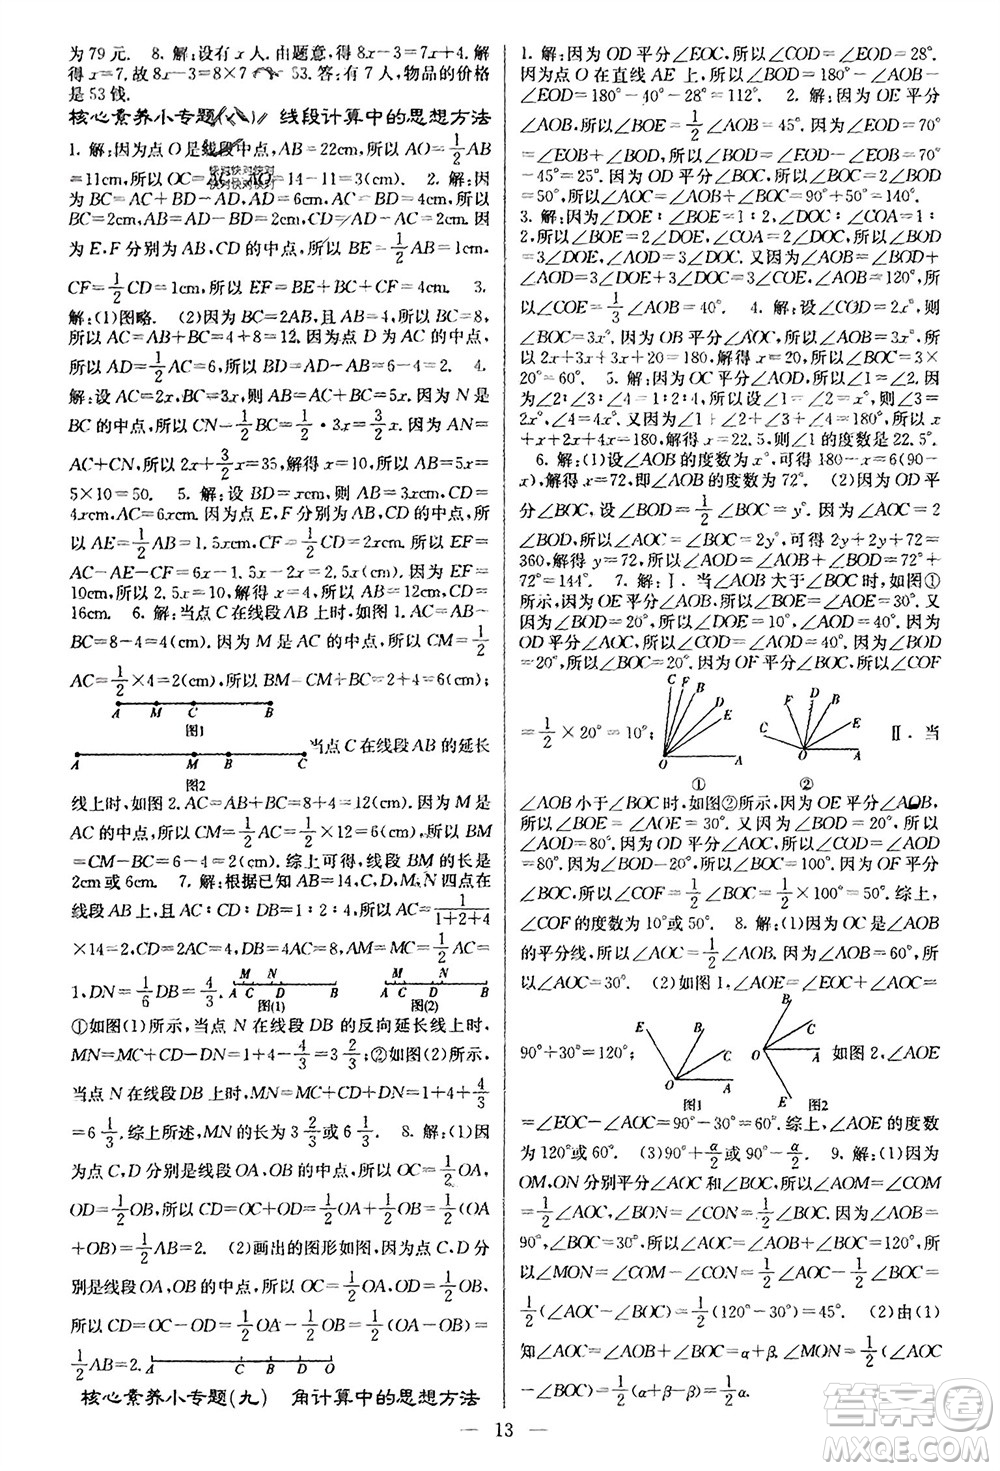 为79元. 8. 解:设有x人,由题意,得8x-3=7x+4.解
得x=7,故8x-3=8×7 53.答:有7人,物品的价格
是53钱.
核心素养小专题(八) 线段计算中的思想方法
1. 解:因为点O是线段中点,AB=22cm,所以AO=1/2AB
=11cm,所以OC= =14-11=3(cm). 2. 解:因
为BC=AC+BD-AD,AD=6cm,AC=BD=4cm,所以
BC=2cm,所以AB=AD-BD=2cm,同理CD=2cm.因
为E,F分别为AB,CD的中点,所以BE=1/2AB=1cm,
CF=1/2CD=1cm,所以EF=BE+BC+CF=4cm. 3.
解:(1)图略. (2)因为BC=2AB,且AB=4,所以BC=8,
所以AC=AB+BC=4+8=12.因为点D为AC的中点,
所以AD=1/2AC=6,所以BD=AD-AB=6-4=2. 4.
解:设AC=2x,BC=3x,则AB=AC+BC=5x.因为N是
BC的中点,所以CN=1/2BC=1/2·3x=3/2x.因为AN=
AC+CN,所以2x+3/2x=35,解得x=10,所以AB=5x=
5×10=50. 5. 解:设BD=x,则AB=3x,CD=4x,
AC=6x.因为点E,F分别为AB,CD的中点,所
以AE=1/2AB=1.5x,CF=1/2CD=2x,所以EF=
AC-AE-CF=6x-1.5x-2x=2.5x.因为EF=
10cm,所以2.5x=10,解得x=4,所以AB=12cm,CD=
16cm. 6. 解:当点C在线段AB上时,如图1.AC=AB-
BC=8-4=4(cm).因为M是AC的中点,所以CM=1/2
AC=1/2×4=2(cm),所以BM=CM+BC=2+4=6(cm);
A M C B
图1
当点C在线段AB的延长
A M B C
图2
线上时,如图2.AC=AB+BC=8+4=12(cm).因为M是
AC的中点,所以CM=1/2AC=1/2×12=6(cm),所以BM
=CM-BC=6-4=2(cm).综上可得,线段BM的长为
2cm或6cm. 7. 解:根据已知AB=14,C,D,M,N四点在
线段AB上,且AC∶CD∶DB=1∶2∶4,所以AC=1/(1+2+4)
×14=2,CD=2AC=4,DB=4AC=8,AM=1/2AC=
1,DN=1/6DB=4/3.
M N
A C D B
图(1)
M N
A C D B
图(2)
①如图(1)所示,当点N在线段DB的反向延长线上时,
MN=MC+CD-DN=1+4-4/3=3 2/3;②如图(2)所示,
当点N在线段DB上时,MN=MC+CD+DN=1+4+4/3
=6 1/3.综上所述,MN的长为3 2/3或6 1/3. 8. 解:(1)因
为点C,D分别是线段OA,OB的中点,所以OC=1/2OA,
OD=1/2OB,所以CD=OC+OD=1/2OA+1/2OB=1/2(OA
+OB)=1/2AB=2. (2)画出的图形如图,因为点C,D分
别是线段OA,OB的中点,所以OC=1/2OA,OD=1/2OB,
所以CD=OC-OD=1/2OA-1/2OB=1/2(OA-OB)=
1/2AB=2.
A C B D O
核心素养小专题(九) 角计算中的思想方法
1. 解:因为OD平分∠EOC,所以∠COD=∠EOD=28°.
因为点O在直线AE上,所以∠BOD=180°-∠AOB-
∠EOD=180°-40°-28°=112°. 2. 解:因为OE平分
∠AOB,所以∠BOE=1/2∠AOB=45°.因为∠EOD=70°
所以∠BOD=∠EOD-∠BOE=70°-
45°=25°.因为OD平分∠BOC,所以∠BOC=2∠BOD
=50°,所以∠AOC=∠AOB+∠BOC=90°+50°=140°.
3. 解:因为∠DOE∶∠BOD=1∶2,∠DOC∶∠COA=1∶
2,所以∠BOE=2∠DOE,∠COA=2∠DOC,所以∠BOD
=3∠DOE,∠AOD=3∠DOC.又因为∠AOB=∠BOD+
∠AOD=3∠DOE+3∠DOC=3∠COE,∠AOB=120°,所
以∠COE=1/3∠AOB=40°. 4. 解:设∠COD=2x°,则
∠BOC=3x°.因为OB平分∠AOC,所以∠AOB=3x°,所
以2x+3x+3x+20=180,解得x=20,所以∠BOC=3×
20°=60°. 5. 解:因为OC平分∠AOD,所以∠1=∠2.因
为∠2∶∠3∶∠4=1∶2∶4,所以设∠1=∠2=x°,则∠3=
2x°,∠4=4x°.又因为∠1+∠2+∠3+∠4=180°,所以x
+x+2x+4x=180,解得x=22.5,则∠1的度数是22.5°.
6. 解:(1)设∠AOB的度数为x°,可得180-x=6(90-
x),解得x=72,即∠AOB的度数为72°. (2)因为OD平
分∠BOC,设∠BOD=1/2∠BOC=y°.因为∠AOC=2
∠BOD,所以∠AOC=∠BOC=2y°,可得2y+2y+72=
360,解得y=72,所以∠AOD=∠AOB+∠BOD=72°+
72°=144°. 7. 解:Ⅰ.当∠AOB大于∠BOC时,如图①
所示,因为OE平分∠AOB,所以∠BOE=∠AOE=30°.因
为∠BOD=20°,所以∠DOE=10°,∠AOD=40°.因为
OD平分∠AOC,所以∠COD=∠AOD=40°.因为∠BOD
=20°,所以∠BOC=20°.因为OF平分∠BOC,所以∠COF
=1/2×20°=10°;
C F B D E O A
①
F D B C E O A
②
Ⅱ.当
∠AOB小于∠BOC时,如图②所示,因为OE平分∠AOB,
所以∠BOE=∠AOE=30°.又因为∠BOD=20°,所以
∠AOD=80°.因为OD平分∠AOC,所以∠COD=∠AOD
=80°.因为∠BOD=20°,所以∠BOC=100°.因为OF平分
∠BOC,所以∠COF=1/2∠BOC=1/2×100°=50°.综上,
∠COF的度数为10°或50°. 8. 解:(1)因为OC是∠AOB
的平分线,所以∠AOC=1/2∠AOB.因为∠AOB=60°,所以
∠AOC=30°. (2)如图1,∠AOE=∠EOC+∠AOC=
90°+30°=120°;
E B C O A
图1
B C O A E
图2
如图2,∠AOE
=∠EOC-∠AOC=90°-30°=60°.综上,∠AOE的度数
为120°或60°. (3)90°+α/2或90°-α/2. 9. 解:(1)因为
OM,ON分别平分∠AOC和∠BOC,所以∠AOM=∠COM
=1/2∠AOC,∠BON=∠CON=1/2∠BOC.因为∠AOB=
90°,∠BOC=30°,所以∠AOC=∠AOB+∠BOC=120°,所
以∠MON=∠COM-∠CON=1/2∠AOC-1/2∠BOC=
1/2(∠AOC-∠BOC)=1/2(120°-30°)=45°. (2)由(1)
知∠AOC=∠AOB+∠BOC=α+β,∠MON=1/2(∠AOC
-∠BOC)=1/2(α+β-β)=1/2α.
— 13 —
快对快对快对
快对快对快对
答案圈
MXQE.COM